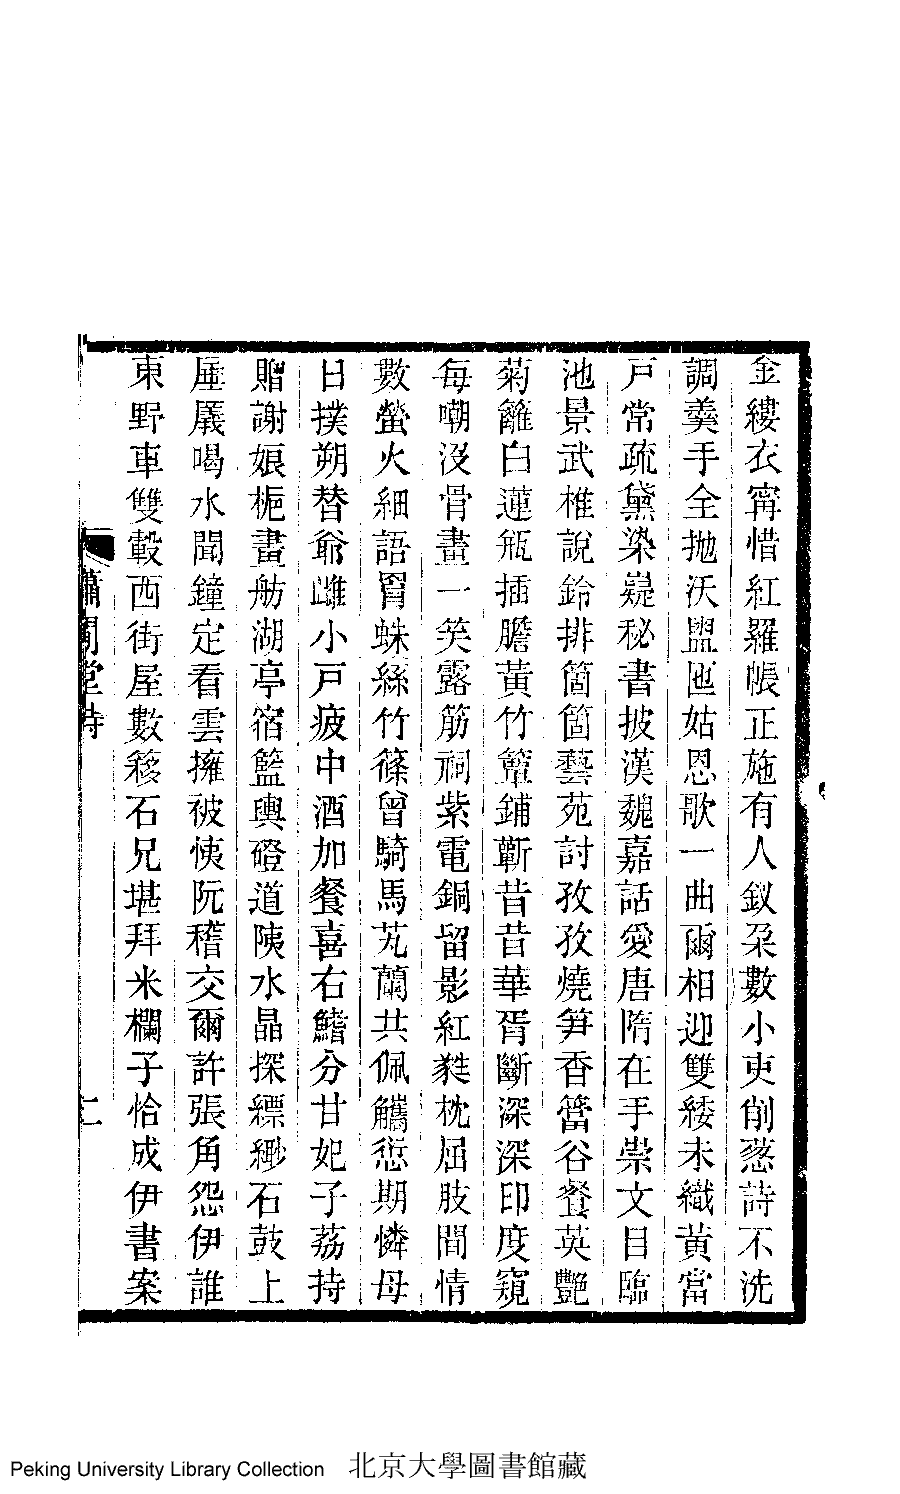 金縷衣寗惜紅羅帳正施有人釵朶數小吏削葱詩不洗
調羹手全抛沃盥匜姑恩歌一曲爾相迎雙緌未織黃當
戸常疏黛染嶷秘書披漢魏嘉話愛唐隋在手崇文目臨
池景武椎說鈴排箇箇藝苑討孜孜燒笋香簹谷餐英艷
菊籬白蓮瓶插膽黃竹簟鋪蘄昔昔華胥斷深深印度窺
每嘲沒骨畫一笑露筋祠紫電銅留影紅麰枕屈肢間情
數螢火細語罥蛛絲竹篠曾騎馬芄蘭共佩觿愆期憐母
日撲朔替爺雌小戸疲中酒加餐喜右鰭分甘妃子荔持
贈謝娘梔畫舫湖亭宿籃輿磴道陝水晶探縹緲石鼓上
厜㕒喝水聞鐘定看雲擁被恞阮稽交爾許張角怨伊誰
東野車雙轂西街屋數移石兄堪拜米欄子恰成伊書案
蕭閒堂詩
二
Peking University Library Collection 北京大學圖書館藏